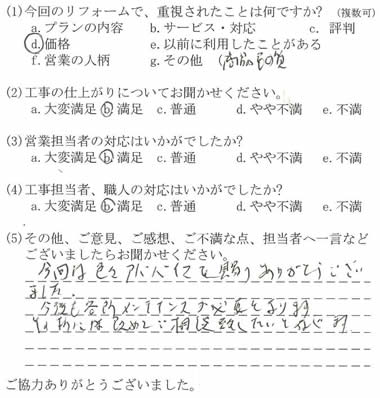 (1)今回のリフォームで、重視されたことは何ですか? (複数可)
a. プランの内容 b. サービス・対応 c. 評判
d.価格 e. 以前に利用したことがある
f. 営業の人柄 g. その他
(2)工事の仕上がりについてお聞かせください。
a. 大変満足 b.満足 c. 普通 d. やや不満 e. 不満
(3)営業担当者の対応はいかがでしたか?
a. 大変満足 b.満足 c. 普通 d. やや不満 e. 不満
(4)工事担当者、職人の対応はいかがでしたか?
a. 大変満足 b.満足 c. 普通 d. やや不満 e. 不満
(5)その他、ご意見、ご感想、ご不満な点、担当者へ一言など
ございましたらお聞かせください。
今回は色々アドバイスを賜りありがとうござい
ました。
今後も各所メンテナンスが必要となります
その折には改めてご相談致したいと存じます
ご協力ありがとうございました。